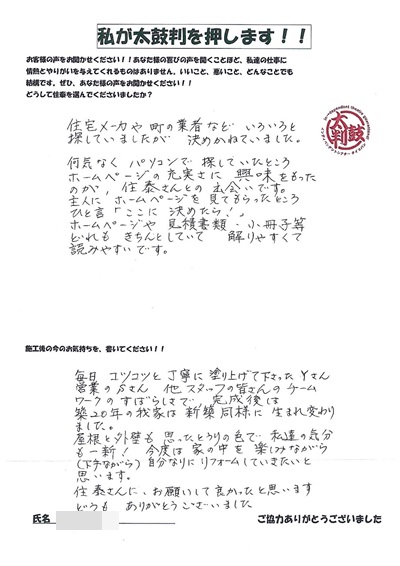 私が太鼓判を押します！！
お客様の声をお聞かせください！！あなた様の喜びの声を聞くことほど、私達の仕事に
情熱とやりがいを与えてくれるものはありません。いいこと、悪いこと、どんなことでも
結構です。ぜひ、あなた様の声をお聞かせください！！
どうして住泰を選んでくださいましたか？
太鼓判
住宅メーカや町の業者など いろいろと
探していましたが 決めかねていました。
何気なく パソコンで 探していたところ
ホームページの充実さに 興味をもった
のが、住泰さんとの 出会いです。
主人に ホームページを 見てもらったところ
ひと言「ここに 決めたら!」
ホームページや 見積書類・小冊子等
どれも きちんとしていて 解りやすくて
読みやすいです。
施工後の今のお気持ちを、書いてください！！
毎日 コツコツと丁寧に塗り上げて下さったYさん
営業のSさん 他スタッフの皆さんのチーム
ワークのすばらしさで 完成後は
築20年の我家は 新築同様に 生まれ変わり
ました。
屋根と外壁も 思ったとうりの色で 私達の気分
も一新! 今度は家の中を 楽しみながら
(下手ながら) 自分なりにリフォームしていきたいと
思います。
住泰さんに、お願いして良かったと思います
どうも ありがとうございました
氏名
ご協力ありがとうございました